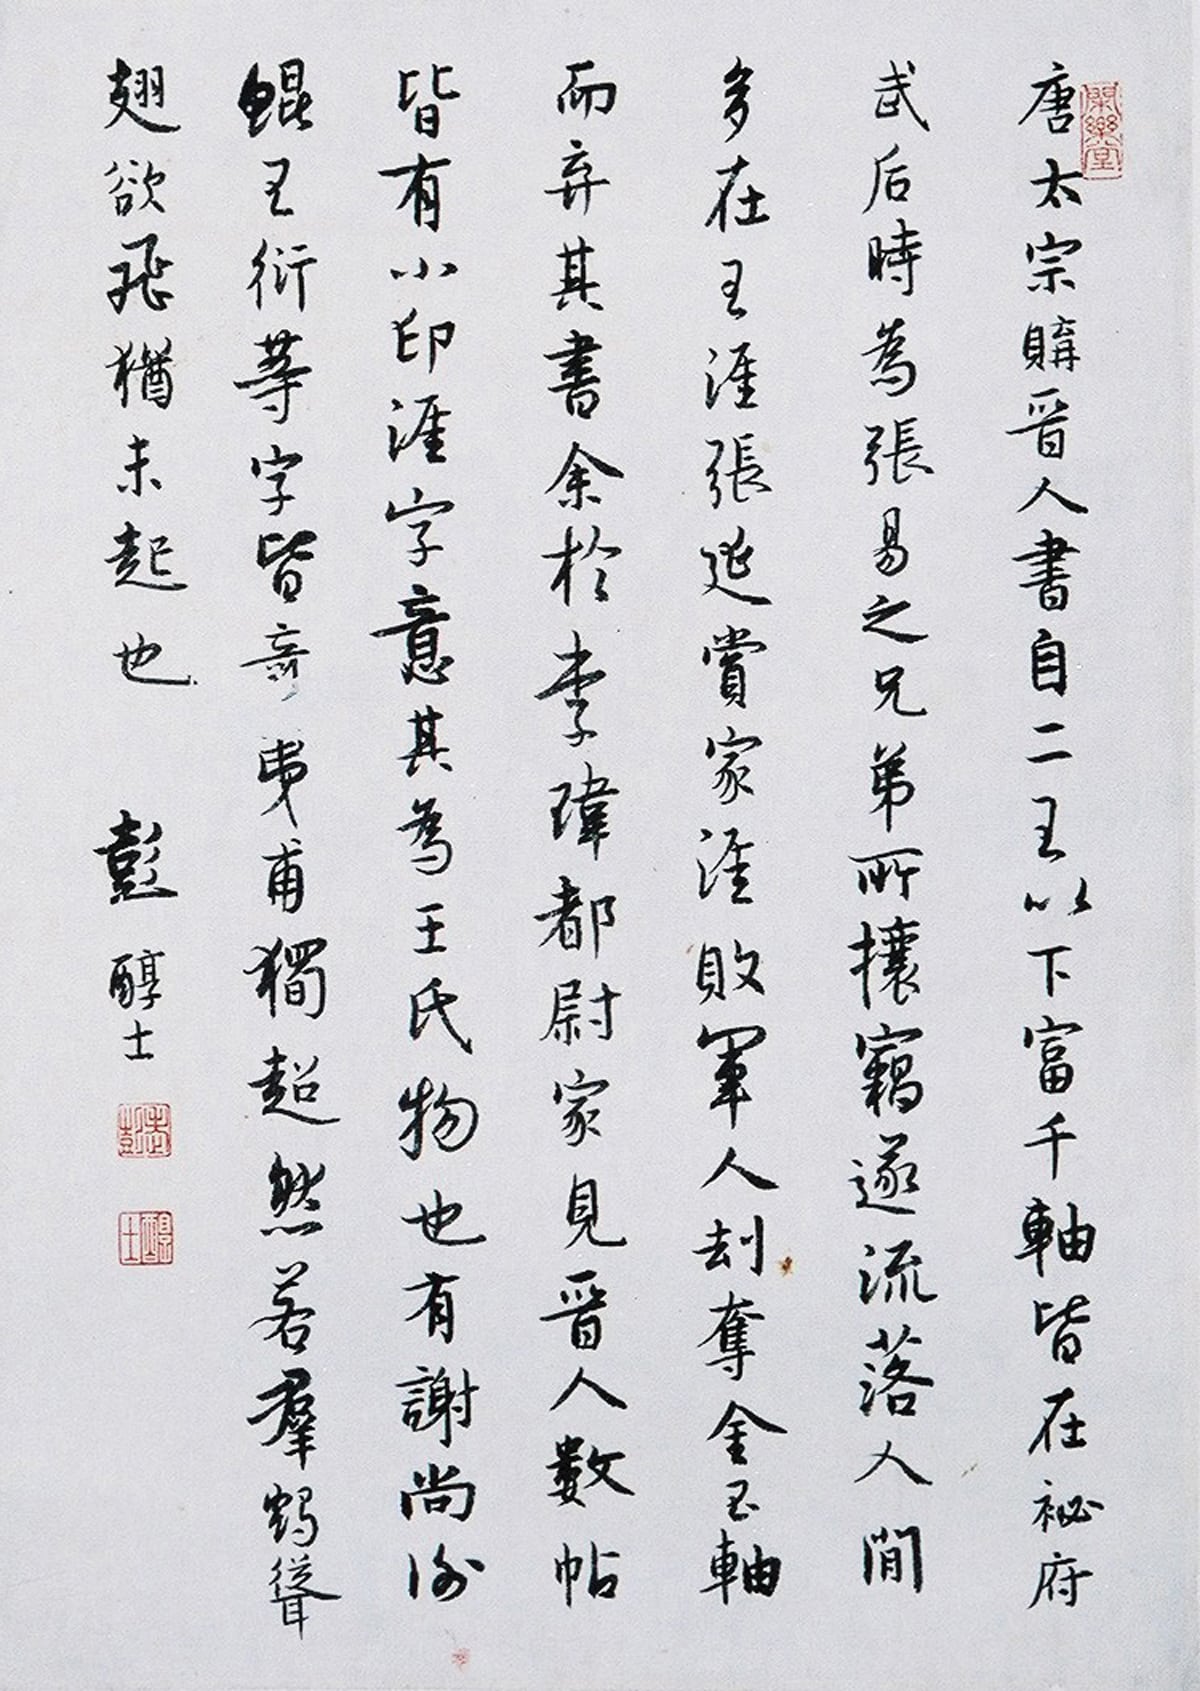 唐太宗購晉人書自二王以下富千軸皆在祕府
武后時為張易之兄弟所攘竊遂流落人間
多在王涯張延賞家涯敗軍人刦奪金玉軸
而弃其書余於李瑋都尉家見晉人數帖
皆有小印涯字意其為王氏物也有謝尚
鯤王衍等字皆奇夷甫獨超然若羣鶴聳
翅欲飛猶未起也
彭醇士
閑樂堂
醇士